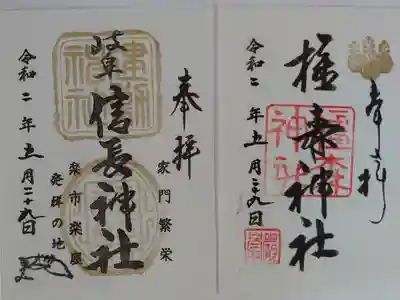 奉拝
橿森神社
橿森神社
令和二年五月二九日
奉拝
家門繁栄
岐阜信長神社
建勲神社
楽市楽座
発祥の地
令和二年五月二十九日